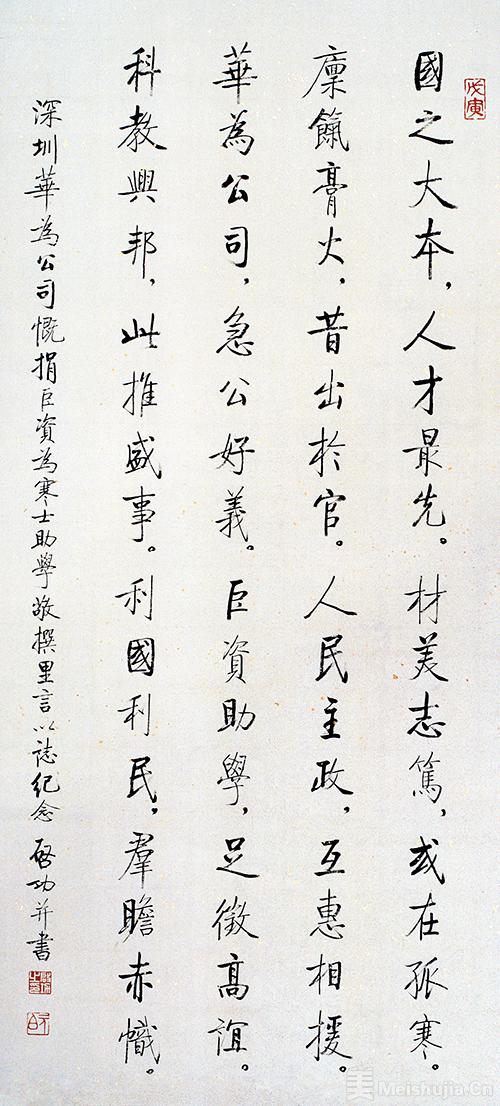 戊寅
國之大本，人才最先。材美志篤，或在孤寒。
廩餼膏火，昔出於官。人民主政，互惠相援。
華為公司，急公好義。巨資助學，足徵高誼。
科教興邦，此推盛事。利國利民，羣瞻赤幟。
深圳華為公司慨捐巨資為寒士助學敬撰里言以誌紀念 啓功并書
美 Meishujia.Cn